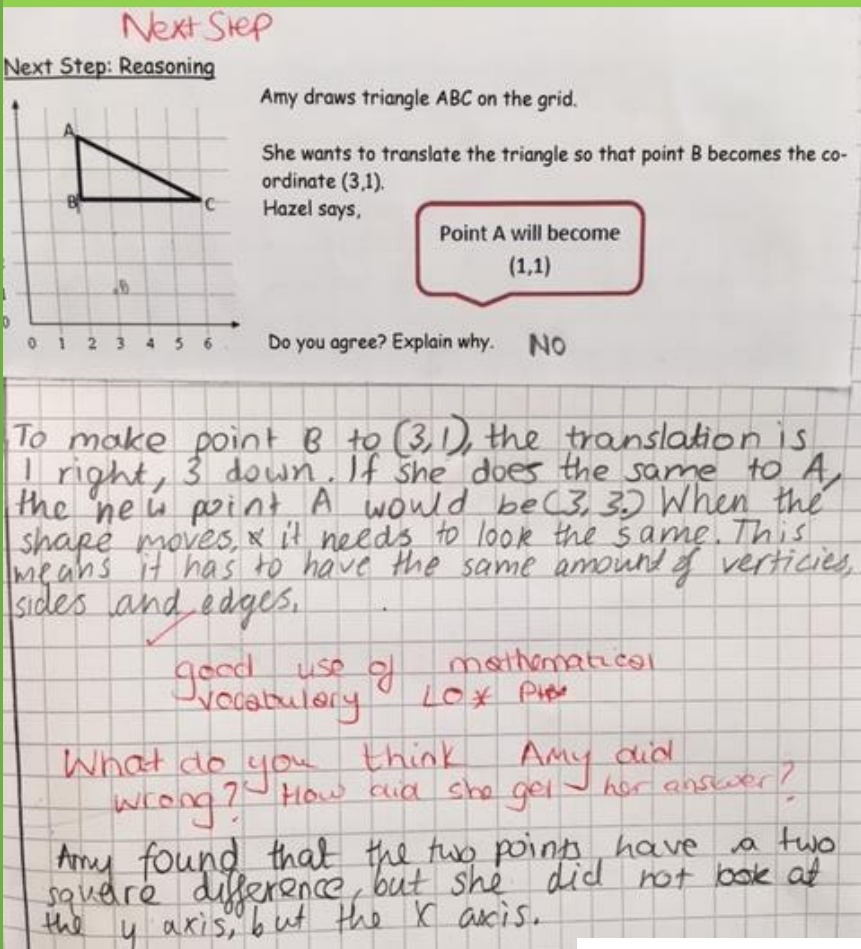 Next Step
Next Step: Reasoning
Amy draws triangle ABC on the grid.
She wants to translate the triangle so that point B becomes the co-
ordinate (3,1).
Hazel says,
Point A will become
(1,1)
A
B
C
B
1
0
0 1 2 3 4 5 6
Do you agree? Explain why. NO
To make point B to (3,1), the translation is
1 right, 3 down. If she does the same to A,
the new point A would be (3, 3.) When the
shape moves, it needs to look the same. This
means it has to have the same amount of verticies,
sides and edges.
good use of mathematical
vocabulary LO
What do you think Amy did
wrong? How did she get her answer?
Amy found that the two points have a two
square difference, but she did not look at
the y axis, but the X axis.